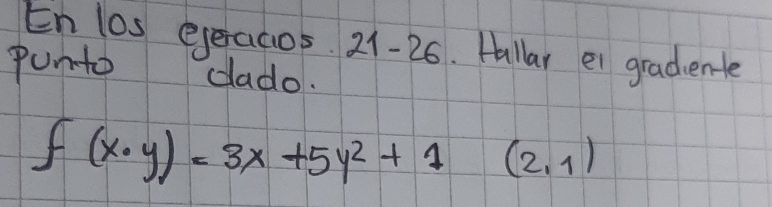 En los ejercicios. 21-26. Hallar el gradiente
punto dado.
f (x.y) = 3x + 5y² + 1 (2,1)